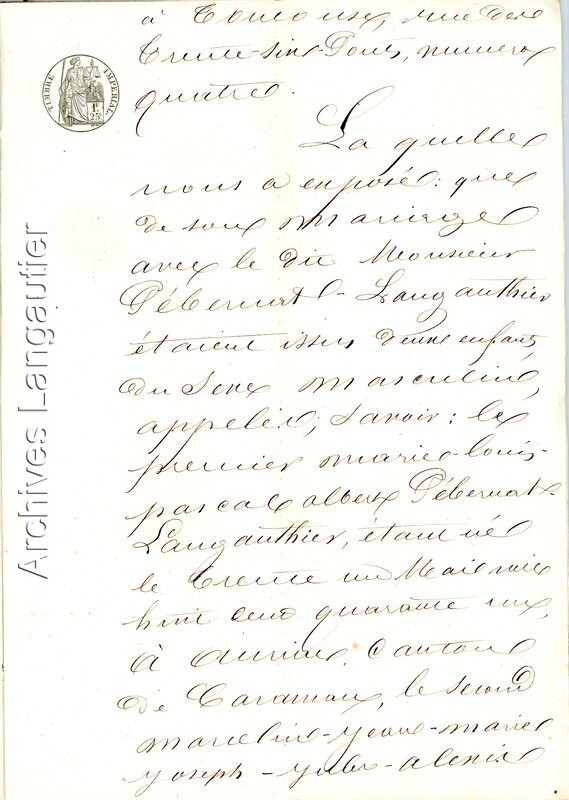 à Toulouse, rue des
Trente-six-Ponts, numéro
quatre.
TIMBRE IMPERIAL
1F
25C
La quelle
nous a exposé: que
de son mariage
avec le dit Monsieur
Pébernat-Langauthier
étaient issus deux enfants
du sexe masculin,
appelés, savoir: le
premier marie-louis-
pascal albert Pébernat-
Langauthier, étant né
le trente un Mai mil
huit cent quarante un,
à Auriac, canton
de Caraman, le second
marcelin-jean-marie
joseph-jules-alexis
Archives Langautier